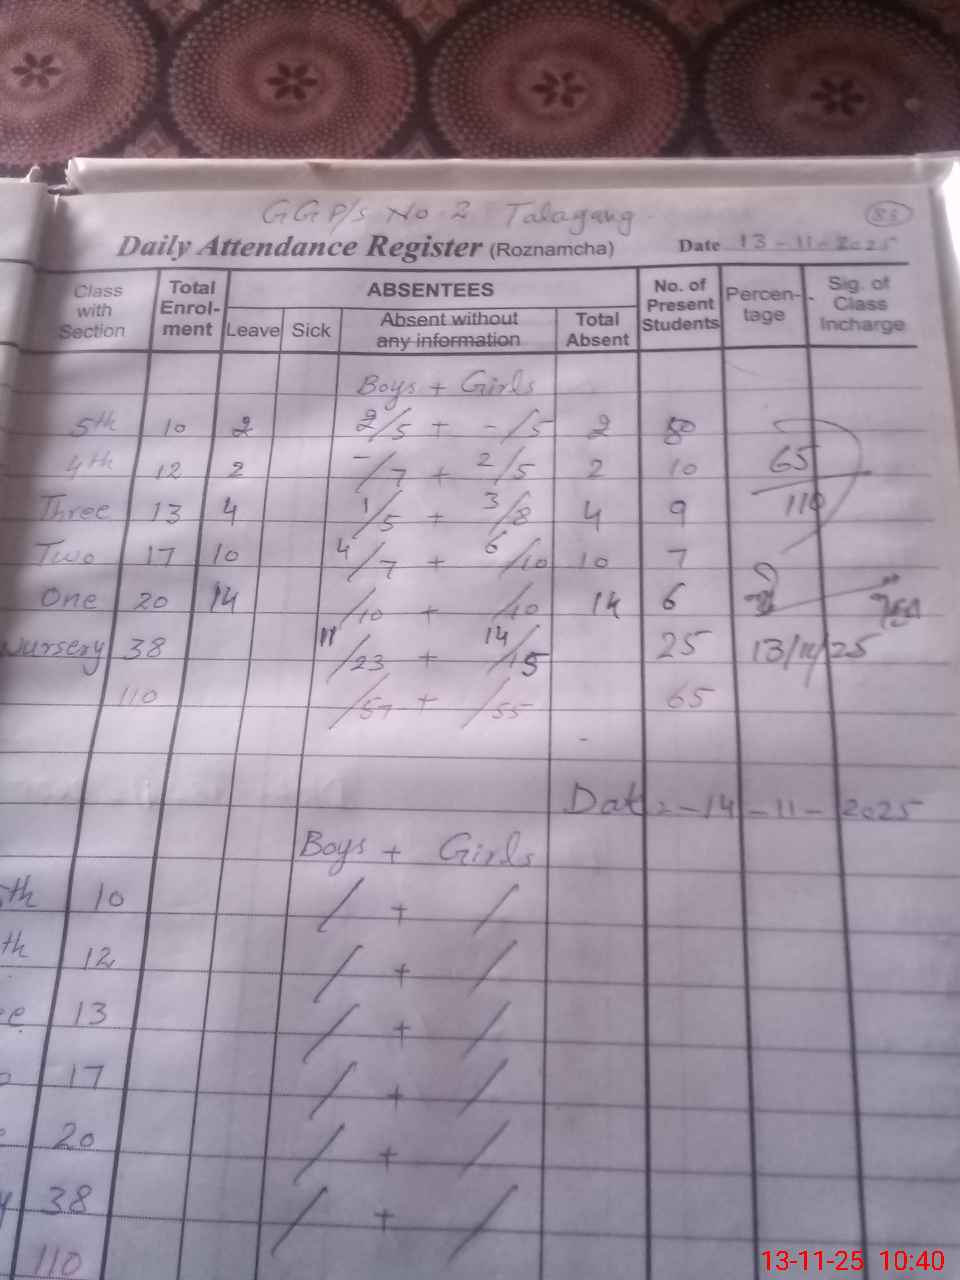 GGP/S No 2 Talagang 83
Daily Attendance Register (Roznamcha) Date 13-11-2025
Class with Section Total Enrol-ment ABSENTEES No. of Present Students Percen-tage Sig. of Class Incharge
Leave Sick Absent without any information Total Absent
Boys + Girls
5th 10 2 2/5 + -/5 2 80
4th 12 2 -/7 + 2/5 2 10 65
Three 13 4 1/5 + 3/8 4 9 110
Two 17 10 4/7 + 6/10 10 7
One 20 14 /10 + /10 14 6
Nursery 38 11/23 + 14/15 25 13/11/25
110 /57 + /55 65
-
Date-14-11-2025
Boys + Girls
5th 10 / + /
th 12 / + /
e 13 / + /
o 17 / + /
e 20 / + /
y 38 / + /
110
13-11-25 10:40